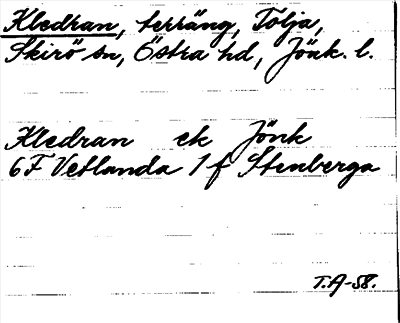 Kledran, terräng, Tolja,
Skirö sn, Östra hd, Jönk. l.
Kledran ek Jönk
6F Vetlanda 1 f Stenberga
T.A-58.